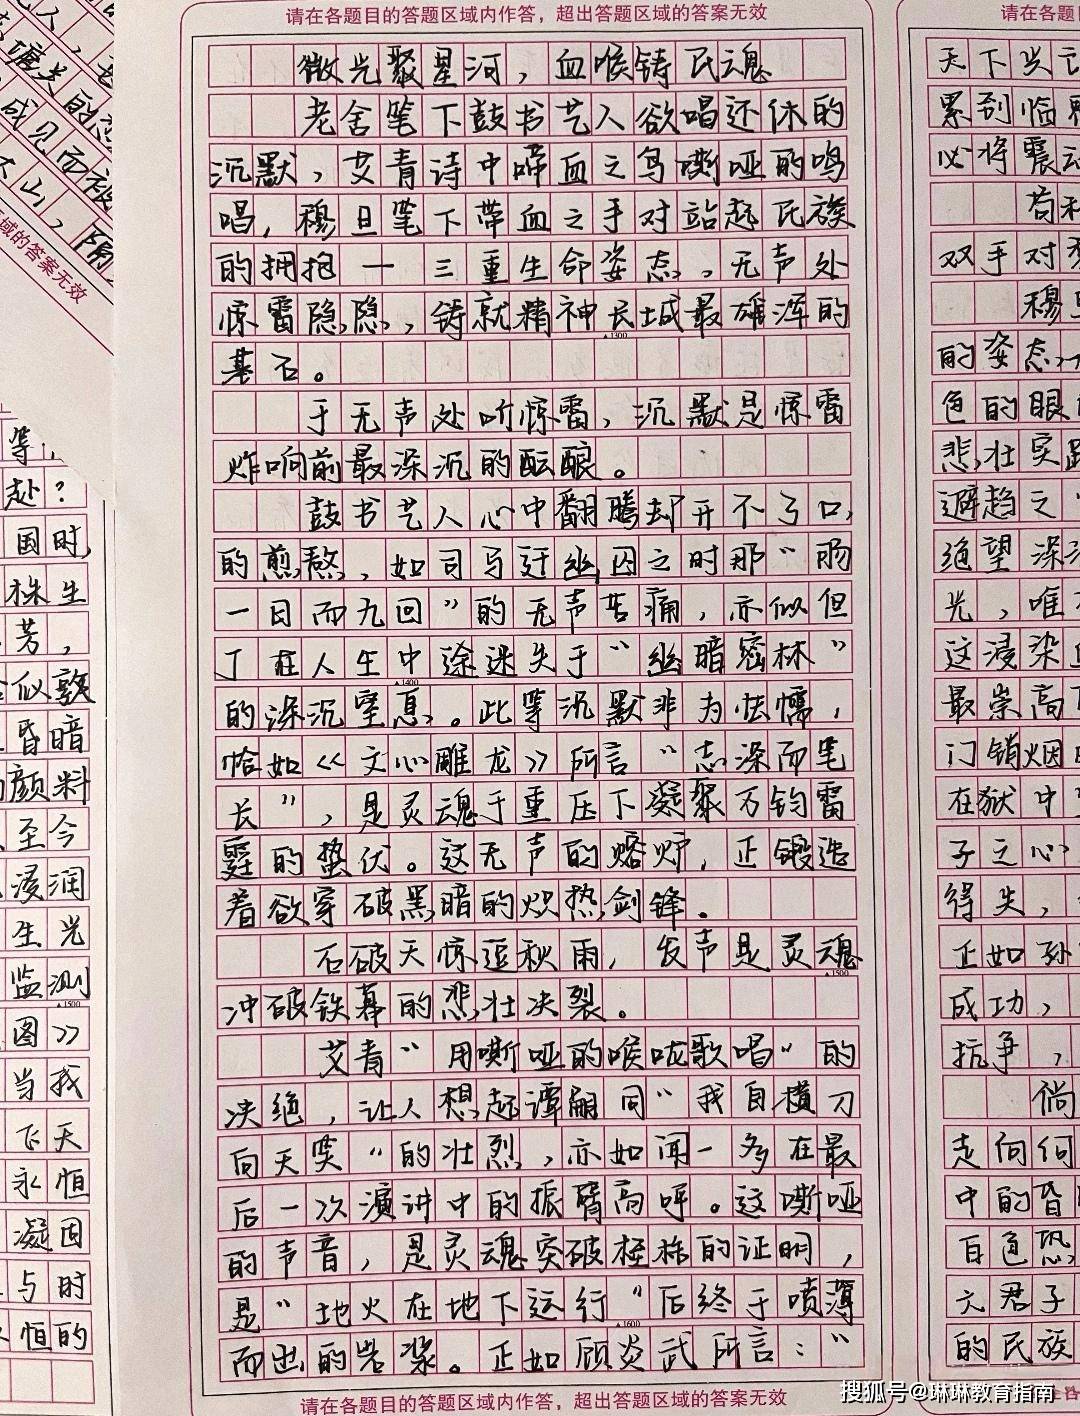 请在各题目的答题区域内作答，超出答题区域的答案无效
微光聚星河，血喉铸民魂
老舍笔下鼓书艺人欲唱还休的
沉默，艾青诗中啼血之鸟嘶哑的鸣
唱，穆旦笔下带血之手对站起民族
的拥抱一三重生命姿态，无声处
惊雷隐隐，铸就精神长城最雄浑的
▲1300
基石。
于无声处听惊雷，沉默是惊雷
炸响前最深沉的酝酿。
鼓书艺人心中翻腾却开不了口
的煎熬，如司马迁幽囚之时那“肠
一日而九回”的无声苦痛，亦似但
丁在人生中途迷失于“幽暗密林”
▲1400
的深沉窒息。此等沉默非为怯懦，
恰如《文心雕龙》所言“志深而笔
长”，是灵魂于重压下凝聚万钧雷
霆的蛰伏。这无声的熔炉，正锻造
着欲穿破黑暗的炽热剑锋。
石破天惊逗秋雨，发声是灵魂
▲1500
冲破铁幕的悲壮决裂。
艾青“用嘶哑的喉咙歌唱”的
决绝，让人想起谭嗣同“我自横刀
向天笑”的壮烈，亦如闻一多在最
后一次演讲中的振臂高呼。这嘶哑
的声音，是灵魂突破桎梏的证明，
是“地火在地下运行”后终于喷薄
▲1600
而出的岩浆。正如顾炎武所言：“
请在各题目的答题区域内作答，超出答题区域的答案无效
成见而被
域的答案无效
赴？
国时，
株生
芳，
似敦
昏暗
颜料
至今
浸润
生光
监测
▲1500
图》
当我
飞天
永恒
凝固
与时
恒的
请在各题目
天下兴亡
累到临
必将震
苟利
双手对
穆旦
的姿态，
色的眼
悲壮实践
避趋之
绝望深
光，唯
这浸染血
最崇高
门销烟
在狱中
子之心
得失，
正如孙
成功，
抗争，
倘
走向何
中的昏
百色恐
六君子
的民族
搜狐号@琳琳教育指南